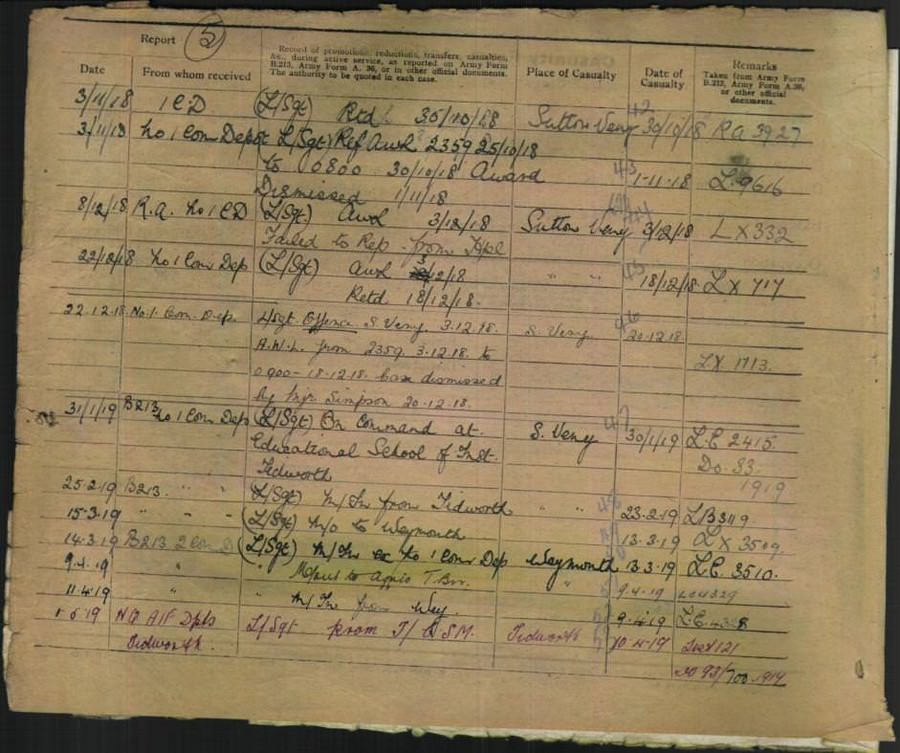 Report 5
Date
From whom received
Record of promotions, reductions, transfers, casualties, &c., during active service, as reported on Army Form B.213, Army Form A. 36, or in other official documents. The authority to be quoted in each case.
Place of Casualty
Date of Casualty
Remarks
Taken from Army Form B.213, Army Form A.36, or other official documents.
3/11/18 1 CD (L/Sgt) Retd 30/10/18 Sutton Veny 30/10/18 RA 3927
3/11/18 No 1 Com Dep L/Sgt Ref Awl 2359 25/10/18
to 0800 30/10/18 Award 1-11-18 L 9616
Dismissed 1/11/18
8/12/18 R.A. No 1 CD (L/Sgt) Awl 3/12/18 Sutton Veny 3/12/18 LX332
Failed to Rep from Hpl
22/12/18 No 1 Com Dep (L/Sgt) Awl 3/12/18 " " 18/12/18 LX 717
Retd 18/12/18.
22.12.18 No.1. Com. Dep. L/Sgt Offence S. Veny. 3.12.18. S. Veny 20.12.18
A.W.L. from 2359. 3.12.18. to LX 1713.
0900 - 18.12.18. case dismissed
by Mjr Simpson 20.12.18.
31/1/19 B213 No 1 Com Dep (L/Sgt) On Command at S. Veny 30/1/19 L.C. 2415
Educational School of Inst. Do 33.
Tidworth 1919
25.2.19 B213. " " (L/Sgt) M/In from Tidworth " " 23.2.19 LB3119
15.3.19 " " " (L/Sgt) M/O to Weymouth 13.3.19 LX 3509.
14.3.19 B213 2 Com D (L/Sgt) M/In ex No 1 Com Dep Weymouth 13.3.19 L.C. 3510.
9.4.19 " " " 9.4.19
11.4.19 " M/In from Wey. 9.4.19
1.5.19 HQ AIF Dpts L/Sgt prom T/CSM. Tidworth 10.4.19
Tidworth.